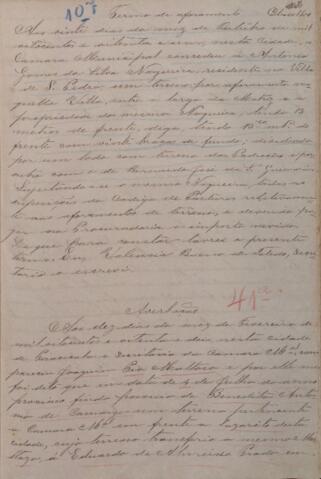 10ª
Termo de aforamento
Aos vinte dias do mez de Outubro de mil
oitocentos e oitenta e um, nesta Cidade, a
Camara Municipal concedeu a Antonio
Gomes da Silva Nogueira, residente na Villa
de S. Pedro, um terreno por aforamento na
quella Villa, entre o largo da Matriz e a
propriedade do mesmo Nogueira, tendo
metros de frente, digo, tendo de
frente com vinte braças de fundo; dividindo
por um lado com terreno
com o de Bernardo José de
Sujeitando-se o mesmo Nogueira, todas as
disposições do Codigo de Posturas relativamen
te aos aforamentos de terrenos, e devendo pa
gar na Procuradoria o importe
Do que para constar lavrei o presente
termo. Eu, Bueno de Toledo, Secre
tario o escrevi.
41ª
Averbação
Aos dez dias do mez de Fevereiro de
mil oitocentos e oitenta e dois, nesta cidade
de Piracicaba e Secretaria da Camara Mᵃˡ, com
pareceu Joaquim Mattoso e por elle me
foi dito que em data de 4 de Julho do anno
proximo findo possuia de Benedicto Anto
nio de Camargo um terreno pertencente
a Camara Mᵃˡ em frente a Lazareto desta
cidade, cujo terreno transferio a mesmo
a Eduardo de Almeida Prado em